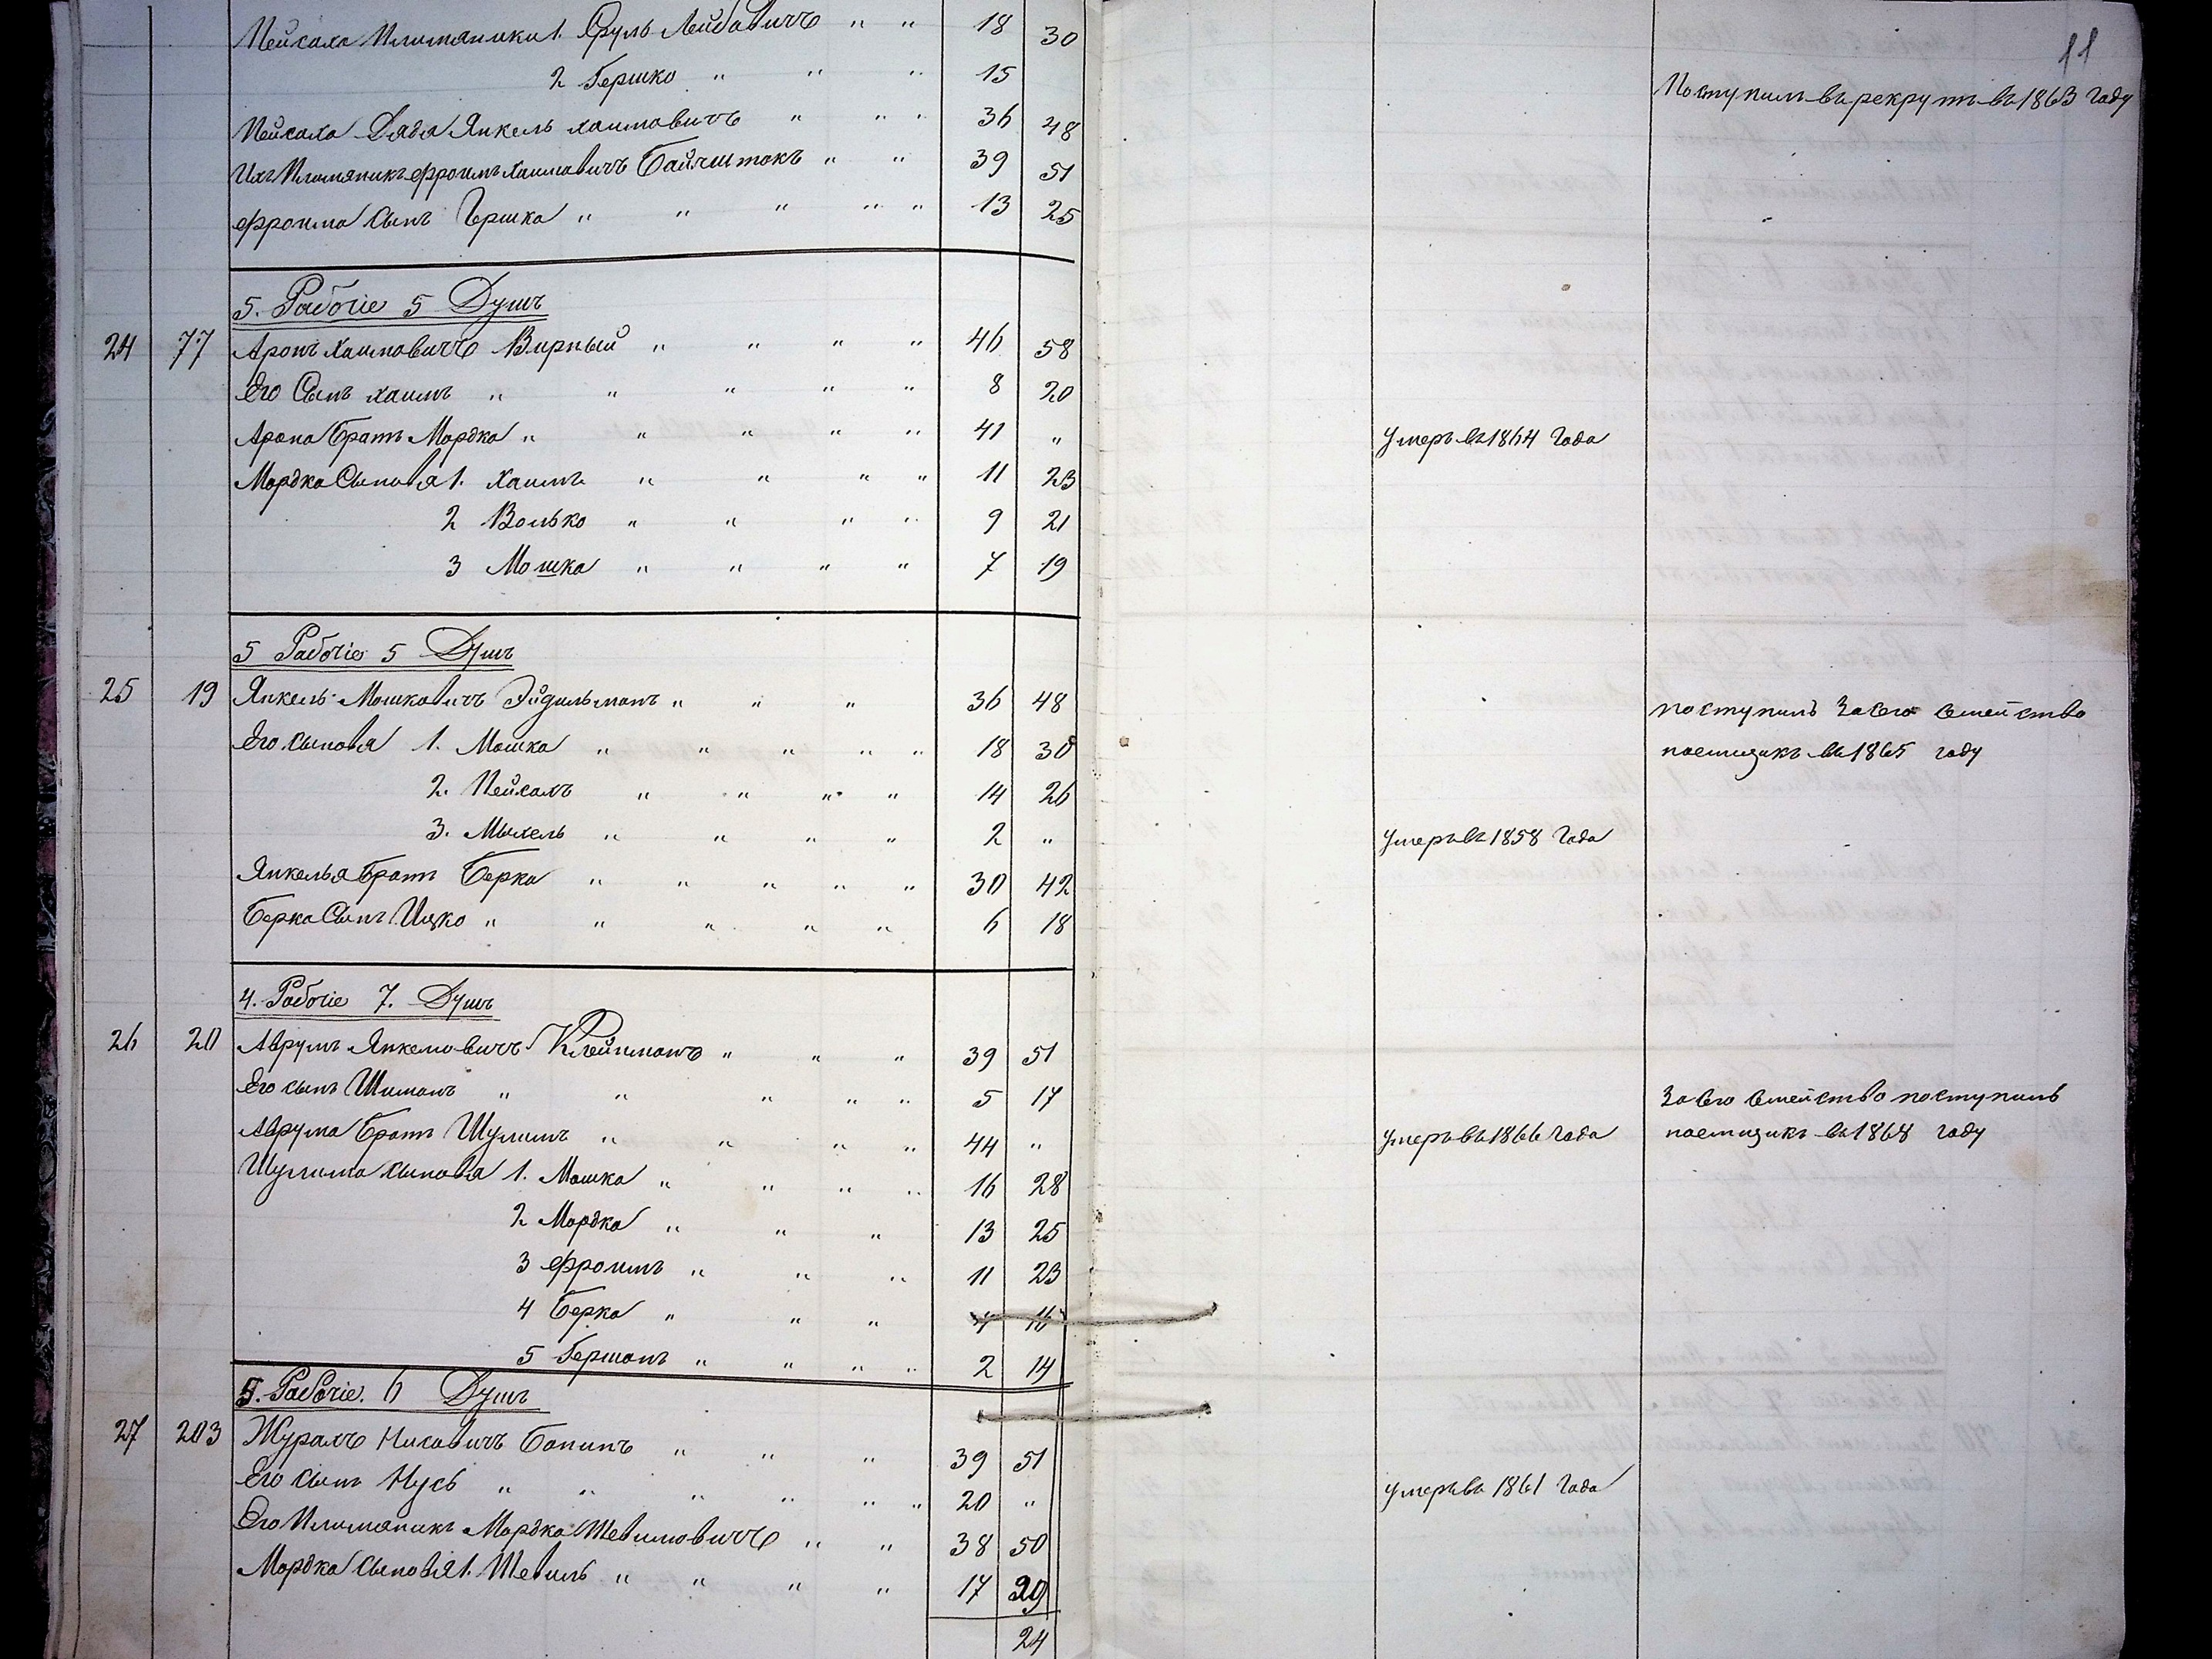 11
Пейсаха Племяники 1. Сруль Лейбовичъ " " 18 30
2 Гершко " " " 15 Поступилъ въ рекруты въ 1863 году
Пейсаха Дядя Янкель Хаимовичъ " " " 36 48
Ихъ Племяникъ Фроимъ Хаимовичъ Байчштокъ " " 39 51
Фроима Сынъ Гершка " " " " " 13 25
5. Рабочіе 5 Душъ
24 77 Аронъ Хаимовичъ Вирный " " " " 46 58
Его Сынъ Хаимъ " " " " " 8 20
Арона Братъ Мордка " " " " " 41 " Умеръ въ 1864 Года
Мордка Сыновья 1. Хаимъ " " " " 11 23
2 Волько " " " " 9 21
3 Мошка " " " " 7 19
5 Рабочіе 5 Душъ
25 19 Янкель Мошковичъ Эйдильманъ " " " 36 48 поступилъ За его Семейство
Его Сыновья 1. Мошка " " " " " 18 30 наемщикъ въ 1865 году
2. Пейсахъ " " " " 14 26
3. Мыхель " " " " 2 " Умеръ въ 1858 Года
Янкелья Братъ Берка " " " " " 30 42
Берка Сынъ Ицко " " " " " 6 18
4. Рабочіе 7. Душъ
26 20 Аврумъ Янкелювичъ Клейнманъ " " " 39 51
Его сынъ Шиманъ " " " " " 5 17 За его Семейство поступилъ
Аврума Братъ Шулимъ " " " " 44 " умеръ въ 1866 Года наемщикъ въ 1868 году
Шулима Сыновья 1. Мошка " " " " 16 28
2 Мордка " " " 13 25
3 Фроимъ " " " 11 23
4 Берка " " " 4 16
5 Гершонъ " " " " 2 14
5. Рабочіе. 6 Душъ
27 203 Журахъ Нисовичъ Бонинъ " " " 39 51
Его Сынъ Нусь " " " " " " 20 " умеръ въ 1861 Года
Его Племяникъ Мордка Шевилювичъ " " 38 50
Мордка Сыновья 1. Шевиль " " " " 17 29
24